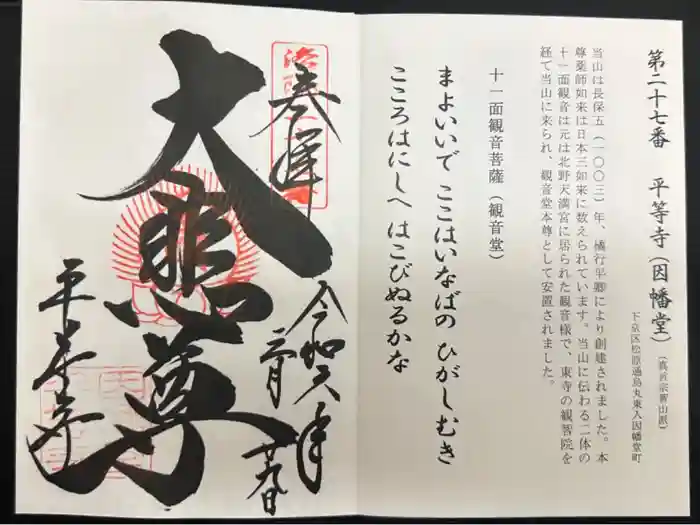 第二十七番 平等寺(因幡堂)
(真言宗智山派)
下京区松原通烏丸東入因幡堂町
当山は長保五(一〇〇三)年、橘行平卿により創建されました。本
尊薬師如来は日本三如来に数えられています。当山に伝わる二体の
十一面観音は元は北野天満宮に居られた観音様で、東寺の観智院を
経て当山に来られ、観音堂本尊として安置されました。
十一面観音菩薩(観音堂)
まよいいで ここはいなばの ひがしむき
こころはにしへ はこびぬるかな
奉拝
令和六年
二月
廿九日
大悲尊
平等寺